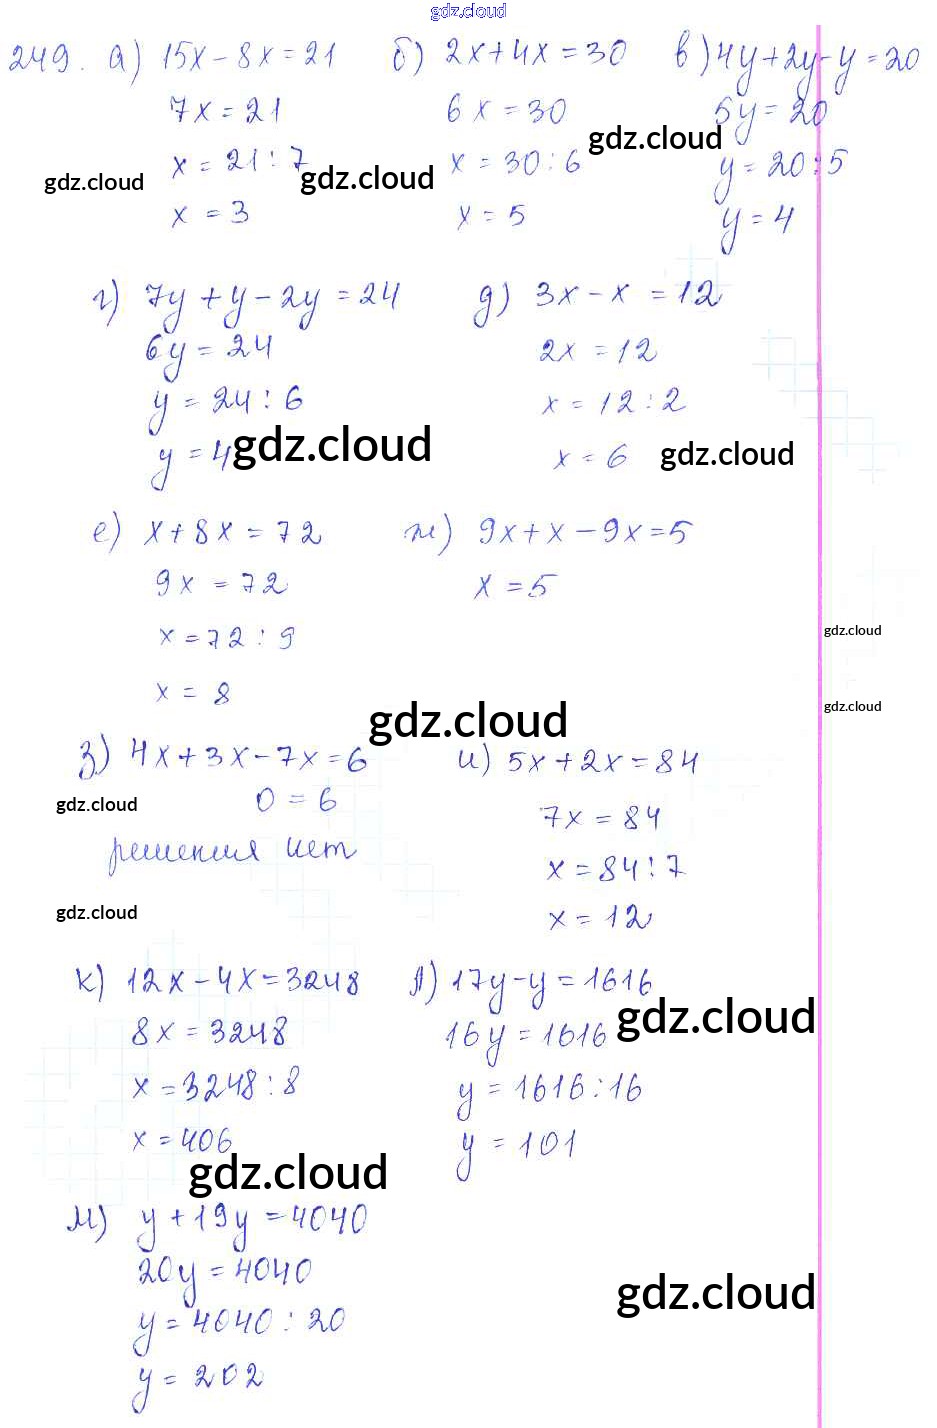 gdz.cloud
249. а) 15x - 8x = 21 б) 2x + 4x = 30 в) 4y + 2y - y = 20
7x = 21 6x = 30 5y = 20
gdz.cloud
x = 21 : 7 x = 30 : 6 y = 20 : 5
gdz.cloud gdz.cloud
x = 3 x = 5 y = 4
г) 7y + y - 2y = 24 д) 3x - x = 12
6y = 24 2x = 12
y = 24 : 6 x = 12 : 2
y = 4 x = 6
gdz.cloud gdz.cloud
е) x + 8x = 72 ж) 9x + x - 9x = 5
9x = 72 x = 5
x = 72 : 9
gdz.cloud
x = 8
gdz.cloud
gdz.cloud
з) 4x + 3x - 7x = 6 и) 5x + 2x = 84
gdz.cloud
0 = 6 7x = 84
решения нет x = 84 : 7
gdz.cloud
x = 12
к) 12x - 4x = 3248 л) 17y - y = 1616
gdz.cloud
8x = 3248 16y = 1616
x = 3248 : 8 y = 1616 : 16
x = 406 y = 101
gdz.cloud
м) y + 19y = 4040
20y = 4040
gdz.cloud
y = 4040 : 20
y = 202